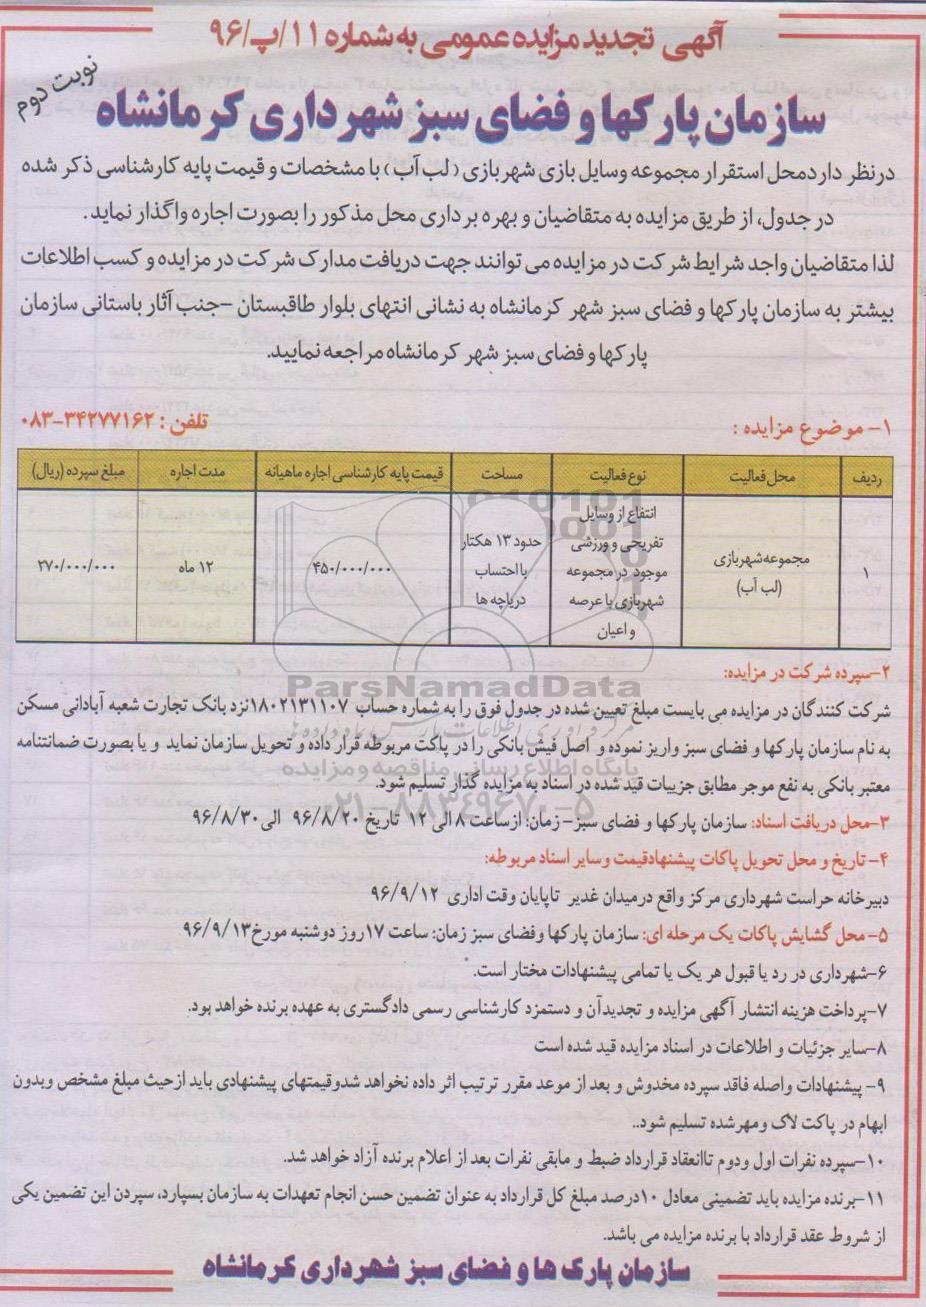 آگهی تجدید مزایده عمومی به شماره ۱۱/پ/۹۶
نوبت دوم
سازمان پارکها و فضای سبز شهرداری کرمانشاه
درنظر دارد محل استقرار مجموعه وسایل بازی شهربازی (لب آب) با مشخصات و قیمت پایه کارشناسی ذکر شده
در جدول، از طریق مزایده به متقاضیان و بهره برداری محل مذکور را بصورت اجاره واگذار نماید.
لذا متقاضیان واجد شرایط شرکت در مزایده می توانند جهت دریافت مدارک شرکت در مزایده و کسب اطلاعات
بیشتر به سازمان پارکها و فضای سبز شهر کرمانشاه به نشانی انتهای بلوار طاقبستان –جنب آثار باستانی سازمان
پارکها و فضای سبز شهر کرمانشاه مراجعه نمایید.
۱- موضوع مزایده : تلفن : ۳۴۲۷۷۱۶۲-۰۸۳
ردیف محل فعالیت نوع فعالیت مساحت قیمت پایه کارشناسی اجاره ماهیانه مدت اجاره مبلغ سپرده (ریال)
۱ مجموعه شهربازی (لب آب) انتفاع از وسایل تفریحی و ورزشی موجود در مجموعه شهربازی با عرصه و اعیان حدود ۱۳ هکتار با احتساب دریاچه ها ۴۵۰/۰۰۰/۰۰۰ ۱۲ ماه ۲۷۰/۰۰۰/۰۰۰
ParsNamadData
۲-سپرده شرکت در مزایده:
شرکت کنندگان در مزایده می بایست مبلغ تعیین شده در جدول فوق را به شماره حساب ۱۸۰۲۱۳۱۱۰۷نزد بانک تجارت شعبه آبادانی مسکن
به نام سازمان پارکها و فضای سبز واریز نموده و اصل فیش بانکی را در پاکت مربوطه قرار داده و تحویل سازمان نماید و یا بصورت ضمانتنامه
پایگاه اطلاع رسانی مناقصه و مزایده
معتبر بانکی به نفع موجر مطابق جزییات قید شده در اسناد به مزایده گذار تسلیم شود.
۰۲۱-۸۸۳۴۹۶۷۰-۵
۳-محل دریافت اسناد: سازمان پارکها و فضای سبز- زمان: ازساعت ۸ الی ۱۲ تاریخ ۹۶/۸/۲۰ الی ۹۶/۸/۳۰
۴- تاریخ و محل تحویل پاکات پیشنهادقیمت وسایر اسناد مربوطه:
دبیرخانه حراست شهرداری مرکز واقع درمیدان غدیر تاپایان وقت اداری ۹۶/۹/۱۲
۵-محل گشایش پاکات یک مرحله ای: سازمان پارکها وفضای سبز زمان: ساعت ۱۷روز دوشنبه مورخ۹۶/۹/۱۳
۶-شهرداری در رد یا قبول هر یک یا تمامی پیشنهادات مختار است.
۷-پرداخت هزینه انتشار آگهی مزایده و تجدیدآن و دستمزد کارشناسی رسمی دادگستری به عهده برنده خواهد بود.
۸-سایر جزئیات و اطلاعات در اسناد مزایده قید شده است
۹- پیشنهادات واصله فاقد سپرده مخدوش و بعد از موعد مقرر ترتیب اثر داده نخواهد شدوقیمتهای پیشنهادی باید ازحیث مبلغ مشخص وبدون
ابهام در پاکت لاک ومهرشده تسلیم شود..
۱۰-سپرده نفرات اول ودوم تاانعقاد قرارداد ضبط و مابقی نفرات بعد از اعلام برنده آزاد خواهد شد.
۱۱-برنده مزایده باید تضمینی معادل ۱۰درصد مبلغ کل قرارداد به عنوان تضمین حسن انجام تعهدات به سازمان بسپارد، سپردن این تضمین یکی
از شروط عقد قرارداد با برنده مزایده می باشد.
سازمان پارک ها و فضای سبز شهرداری کرمانشاه